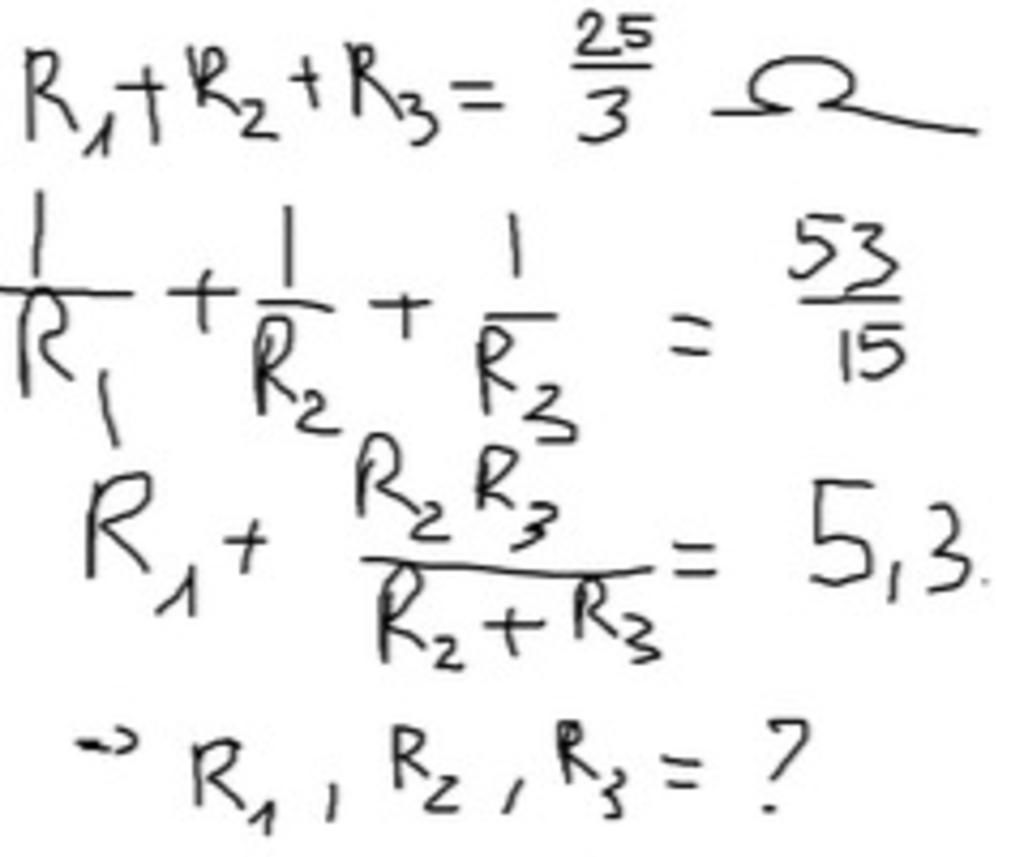 R₁ + R₂ + R₃ = 25/3 Ω
1/R₁ + 1/R₂ + 1/R₃ = 53/15
R₁ + R₂ R₃/(R₂ + R₃) = 5,3.
→ R₁, R₂, R₃ = ?